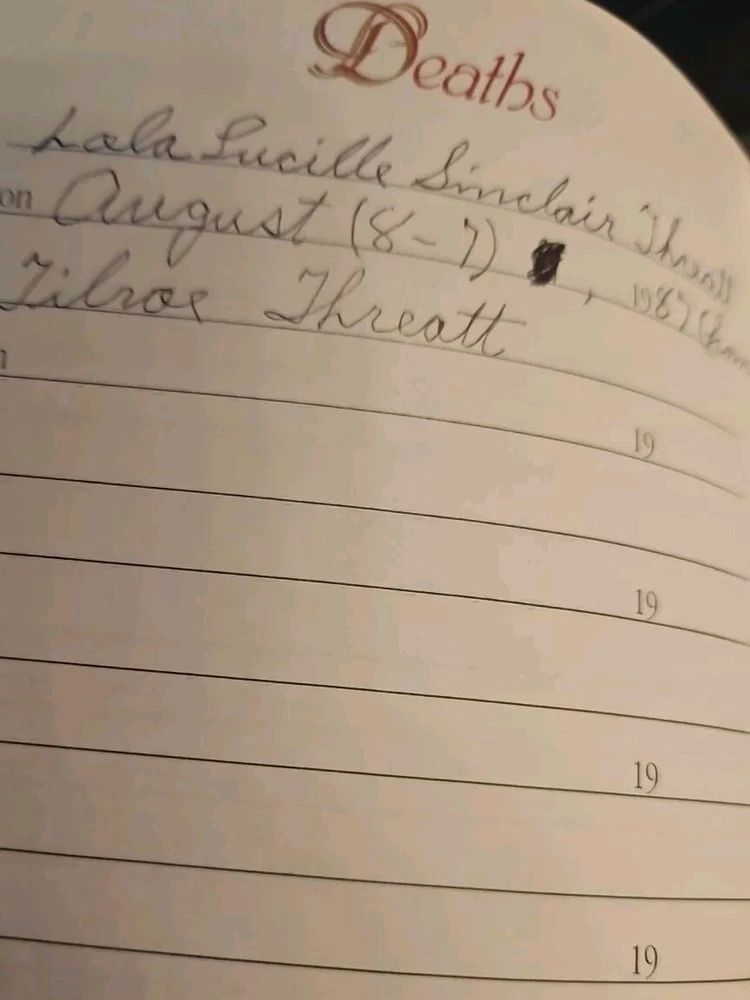 Deaths
Lola Lucille Sinclair Threatt
on August (8-7) , 1987
Threatt
19
19
19
19